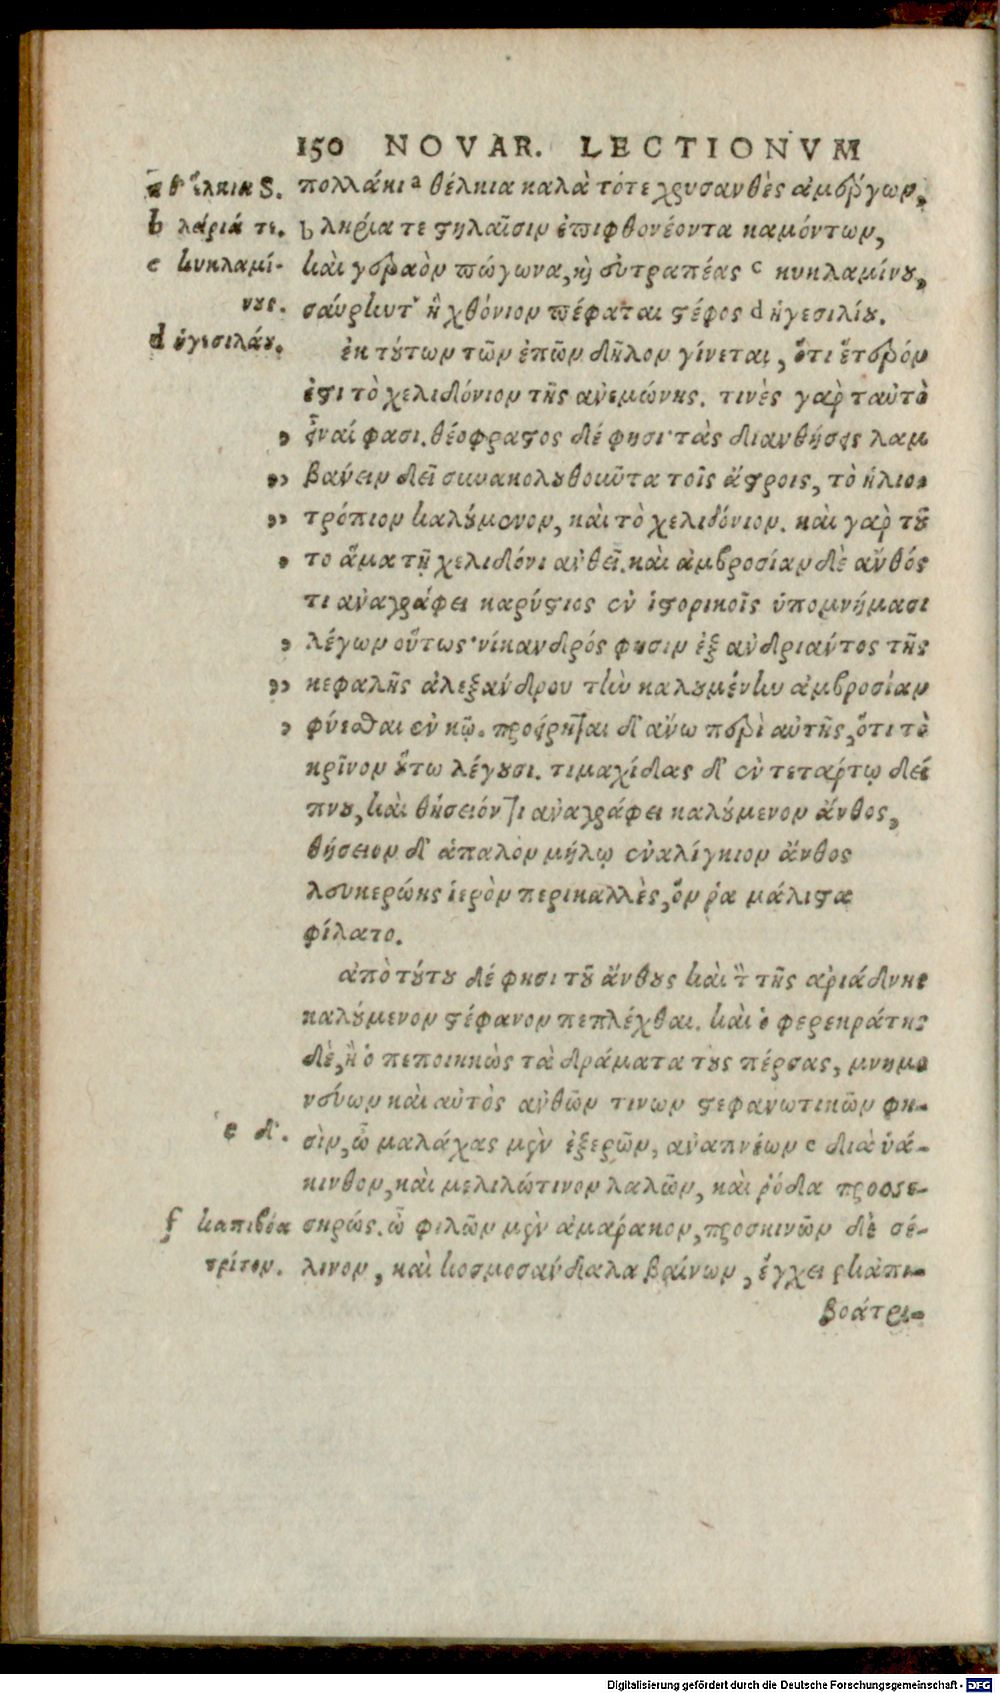 150 NOVAR. LECTIONVM
πολλάκι a θέλκια καλὰ τότε χρυσανθὲς ἀμέργων,
b ληρίά τε στηλαῖσιν ἐπιφθονέοντα καμόντων,
καὶ γεραὸν πώγωνα, καὶ ἐυτραπέας c κυκλαμίνου,
σαύρην τ᾽ ἣ χθόνιον πέφαται στέφος d ἡγεσιλίου.
ἐκ τούτων τῶν ἐπῶν δῆλον γίνεται, ὅτι ἕτερόν
ἐστι τὸ χελιδόνιον τῆς ἀνεμώνης. τινὲς γὰρ ταὐτὸ
εἶναί φασι. θεόφραστος δέ φησι· τὰς διανθήσεις λαμ
βάνειν δεῖ συνακολουθοῦντα τοῖς ἄστροις, τὸ ἡλιο-
τρόπιον καλούμενον, καὶ τὸ χελιδόνιον. καὶ γὰρ τοῦ
το ἅμα τῇ χελιδόνι ἀνθεῖ. καὶ ἀμβροσίαν δὲ ἄνθός
τι ἀναγράφει καρύστιος ἐν ἱστορικοῖς ὑπομνήμασι
λέγων οὕτως· νίκανδρός φησιν ἐξ ἀνδριάντος τῆς
κεφαλῆς ἀλεξάνδρου τὴν καλουμένην ἀμβροσίαν
φύεσθαι ἐν κῷ. προείρηται δ᾽ ἄνω περὶ αὐτῆς, ὅτι τὸ
κρῖνον οὕτω λέγουσι. τιμαχίδας δ᾽ ἐν τετάρτῳ δεί
πνου, καὶ θήσειόν τι ἀναγράφει καλούμενον ἄνθος,
θήσειον δ᾽ ἁπαλὸν μήλῳ ἐναλίγκιον ἄνθος
λευκερώης ἱερὸν περικαλλὲς, ὅν ῥα μάλιστα
φίλατο.
ἀπὸ τούτου δέ φησι τοῦ ἄνθους καὶ τὸν τῆς ἀριάδνης
καλούμενον στέφανον πεπλέχθαι. καὶ ὁ φερεκράτης
δὲ, ἢ ὁ πεποιηκὼς τὰ δράματα τοὺς πέρσας, μνημο
νεύων καὶ αὐτὸς ἀνθῶν τινων στεφανωτικῶν φη-
σὶν, ὦ μαλάχας μὲν ἐξερῶν, ἀναπνέων e διὰ ὑά-
κινθον, καὶ μελιλώτινον λαλῶν, καὶ ῥόδα προσσε-
σηρώς. ὦ φιλῶν μὲν ἀμάρακον, προσκινῶν δὲ σέ-
λινον, καὶ κοσμοσάνδαλα βαίνων, ἔγχει f κἀπι-
βοάτρι-
a θ᾽ ἕλκια S.
b λάριά τε.
c κυκλαμί-
νους.
d ἡγεσιλάου.
e δ᾽.
f κἀπιβόα
τρίτον.
Digitalisierung gefördert durch die Deutsche Forschungsgemeinschaft - DFG